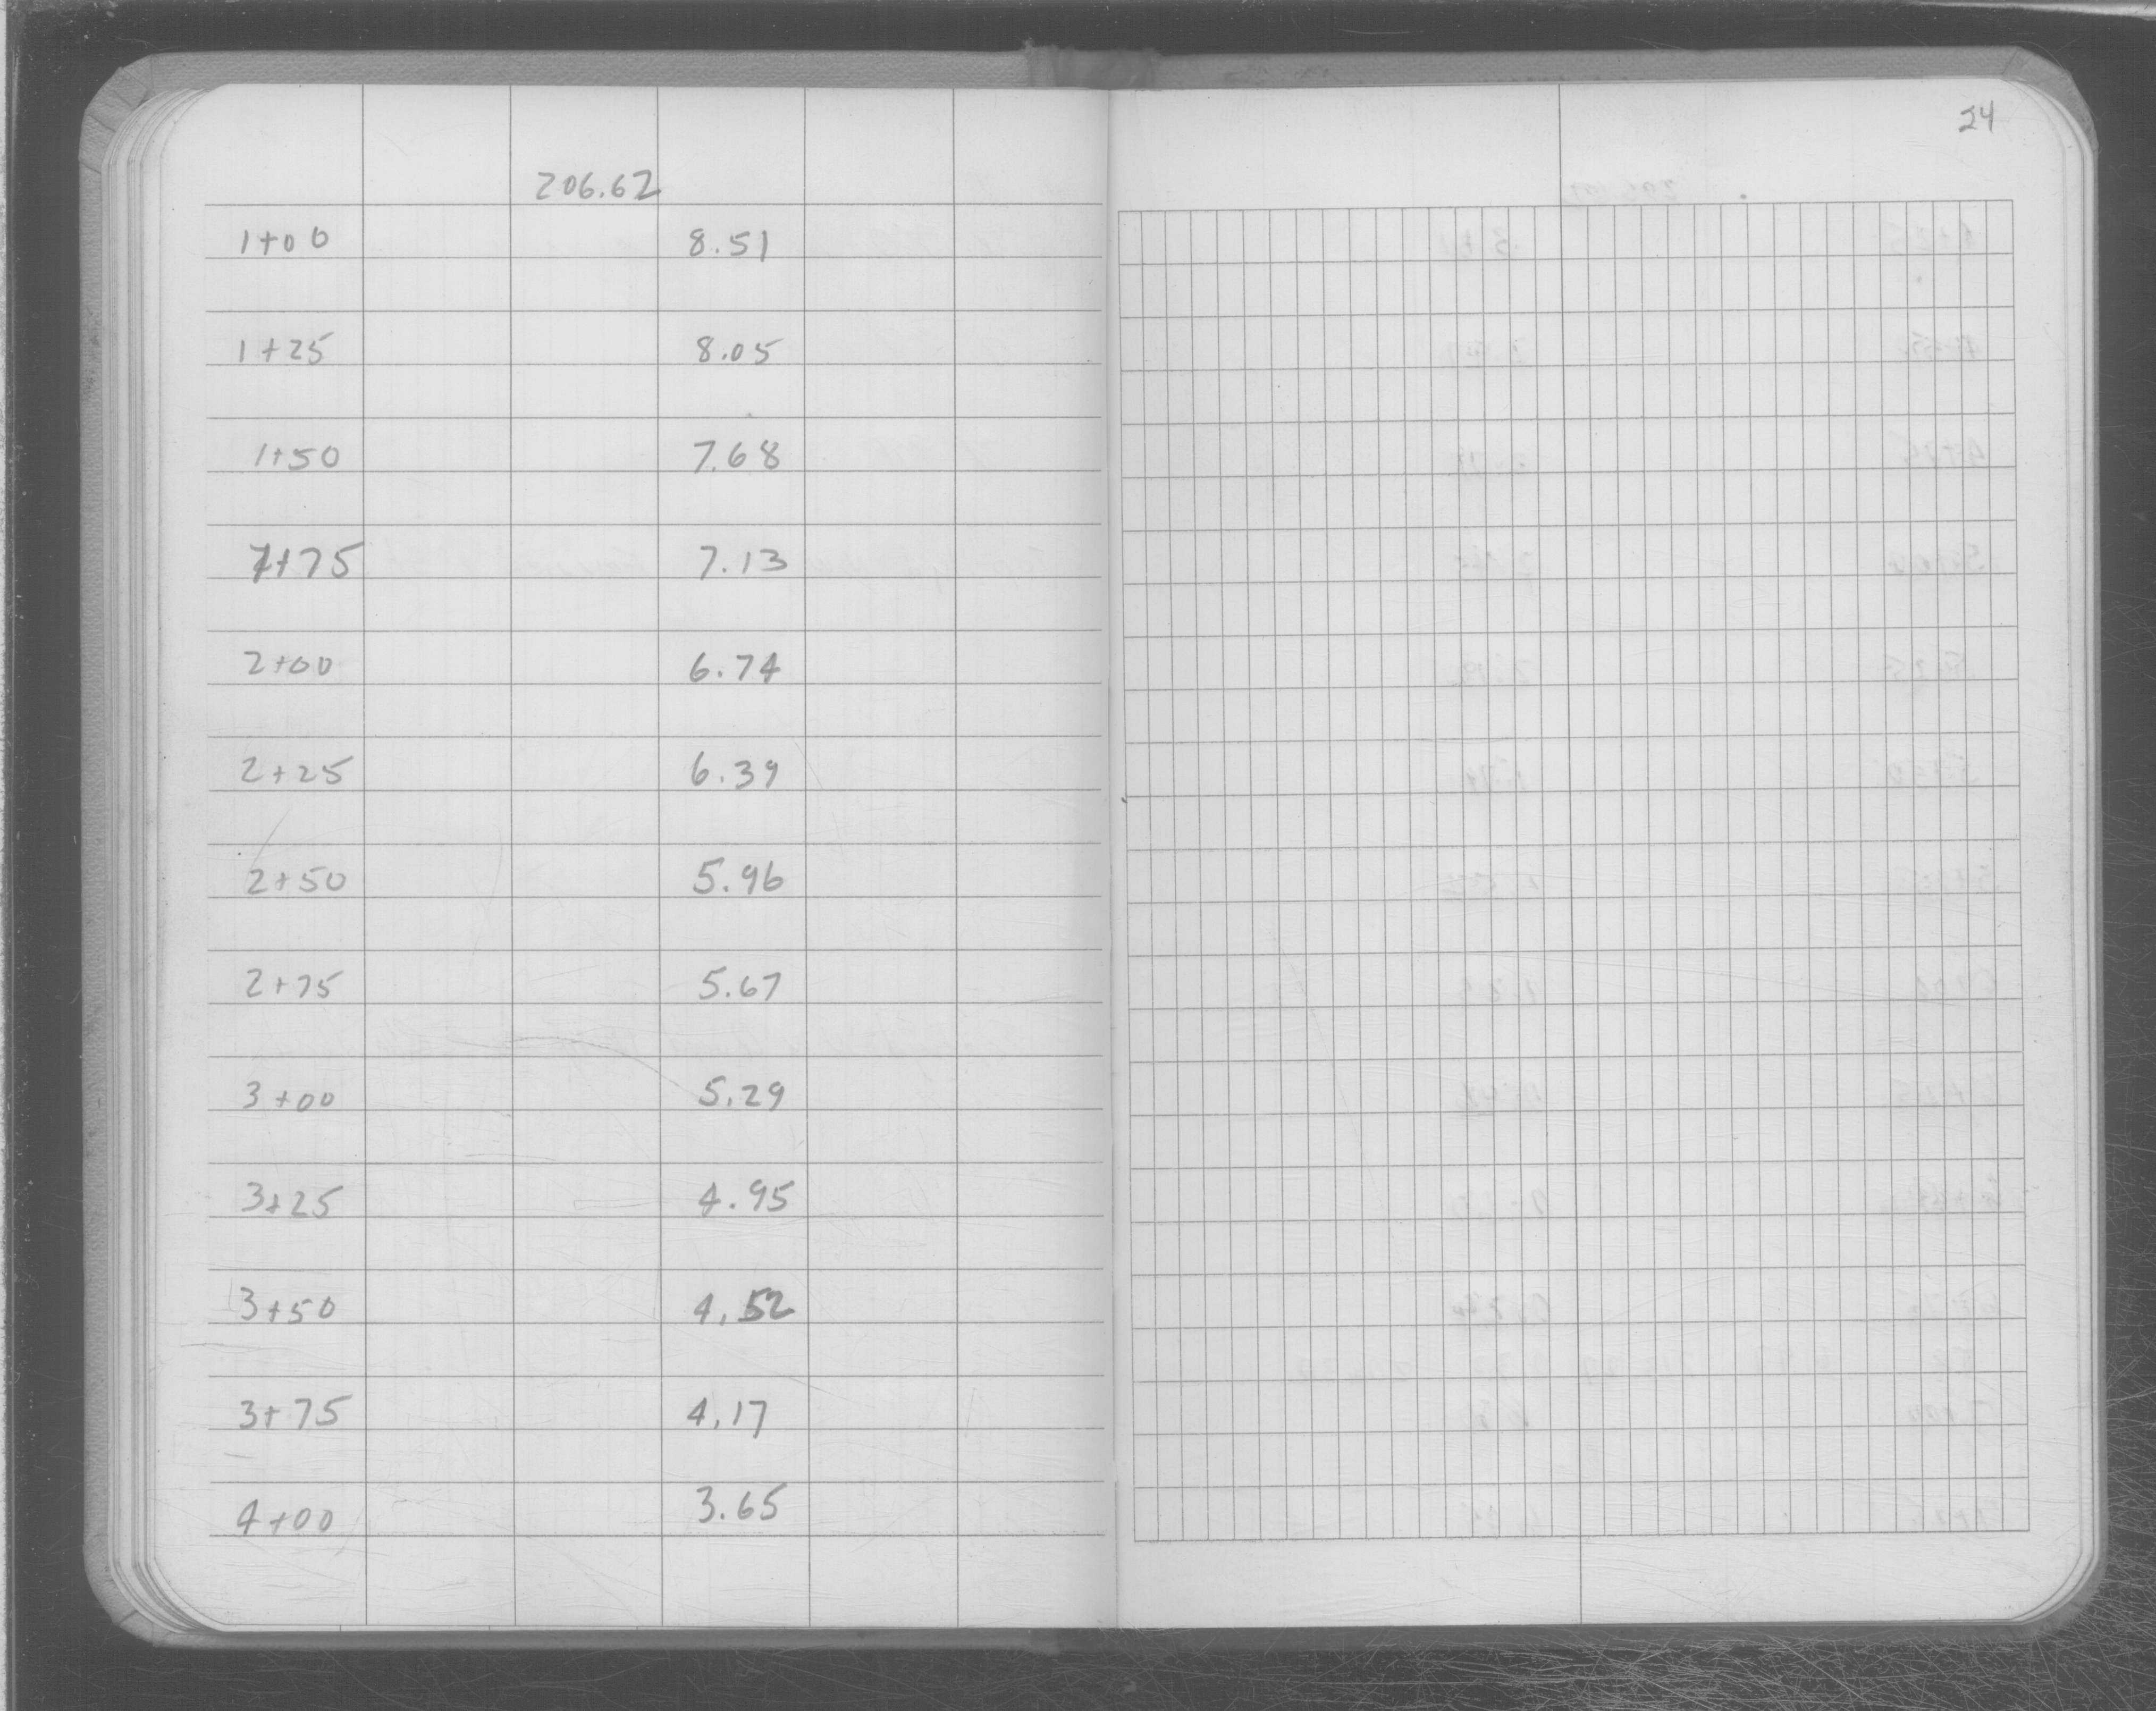 24
206.62
1+00 8.51
1+25 8.05
1+50 7.68
1+75 7.13
2+00 6.74
2+25 6.39
2+50 5.96
2+75 5.67
3+00 5.29
3+25 4.95
3+50 4.52
3+75 4.17
4+00 3.65